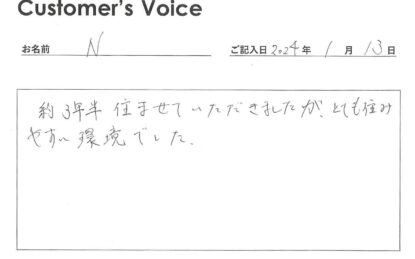 Customer's Voice
お名前 N ご記入日 2024 年 1 月 13 日
約3年半 住ませていただきましたが、とても住み
やすい環境でした.